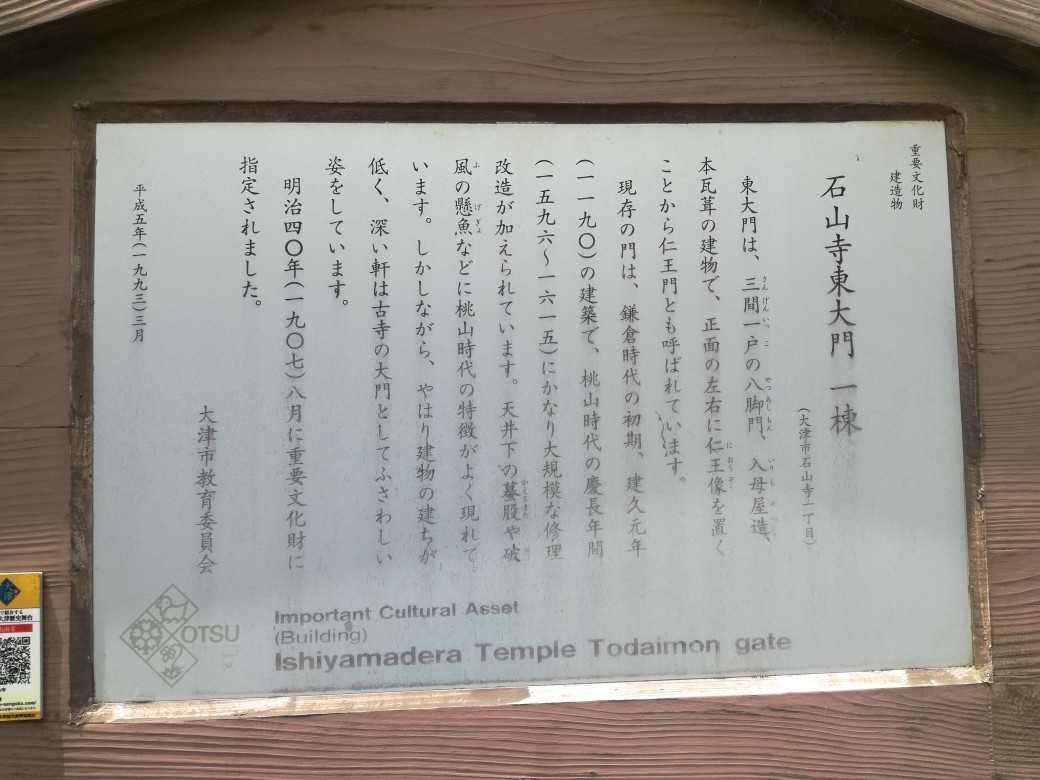 重要文化財
建造物
石山寺東大門 一棟
(大津市石山寺一丁目)
東大門は、三間一戸の八脚門、入母屋造、
本瓦葺の建物で、正面の左右に仁王像を置く
ことから仁王門とも呼ばれています。
現存の門は、鎌倉時代の初期、建久元年
(一一九〇)の建築で、桃山時代の慶長年間
(一五九六〜一六一五)にかなり大規模な修理
改造が加えられています。天井下の蟇股や破
風の懸魚などに桃山時代の特徴がよく現れて
います。しかしながら、やはり建物の建ちが
低く、深い軒は古寺の大門としてふさわしい
姿をしています。
明治四〇年(一九〇七)八月に重要文化財に
指定されました。
平成五年(一九九三)三月
大津市教育委員会
OTSU
Important Cultural Asset
(Building)
Ishiyamadera Temple Todaimon gate